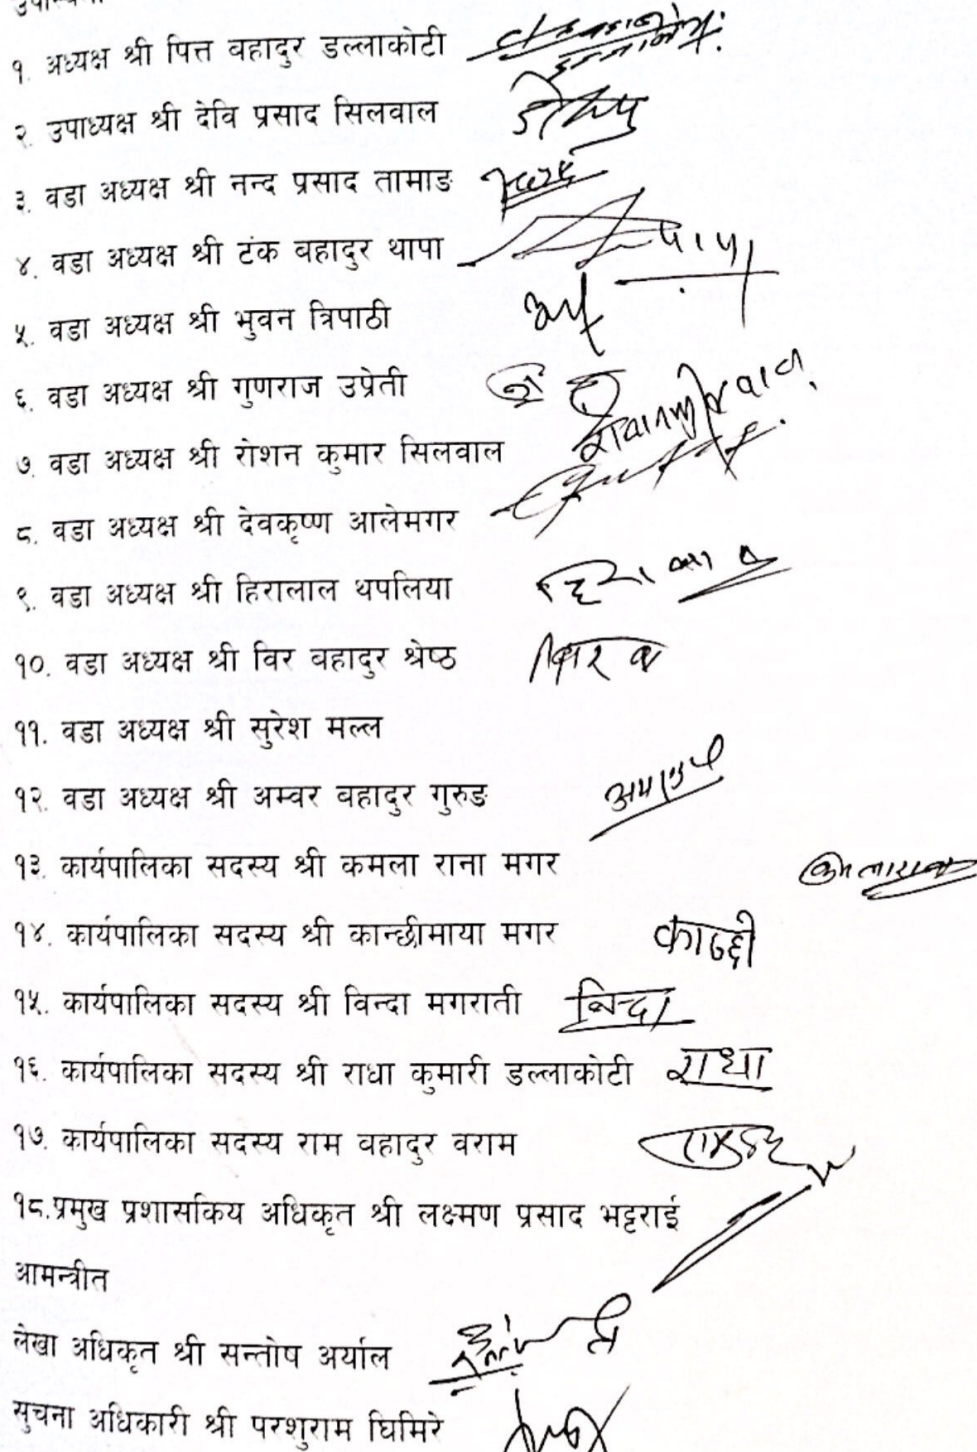 १. अध्यक्ष श्री पित्त वहादुर डल्लाकोटी
२. उपाध्यक्ष श्री देवि प्रसाद सिलवाल
३. वडा अध्यक्ष श्री नन्द प्रसाद तामाङ
४. वडा अध्यक्ष श्री टंक बहादुर थापा
५. वडा अध्यक्ष श्री भुवन त्रिपाठी
६. वडा अध्यक्ष श्री गुणराज उप्रेती
७. वडा अध्यक्ष श्री रोशन कुमार सिलवाल
८. वडा अध्यक्ष श्री देवकृष्ण आलेमगर
९. वडा अध्यक्ष श्री हिरालाल थपलिया
१०. वडा अध्यक्ष श्री विर बहादुर श्रेष्ठ
११. वडा अध्यक्ष श्री सुरेश मल्ल
१२. वडा अध्यक्ष श्री अम्वर बहादुर गुरुङ
१३. कार्यपालिका सदस्य श्री कमला राना मगर
१४. कार्यपालिका सदस्य श्री कान्छीमाया मगर
१५. कार्यपालिका सदस्य श्री विन्दा मगराती विन्दा
१६. कार्यपालिका सदस्य श्री राधा कुमारी डल्लाकोटी राधा
१७. कार्यपालिका सदस्य राम वहादुर वराम
१८.प्रमुख प्रशासकिय अधिकृत श्री लक्ष्मण प्रसाद भट्टराई
आमन्त्रीत
लेखा अधिकृत श्री सन्तोष अर्याल
सुचना अधिकारी श्री परशुराम घिमिरे